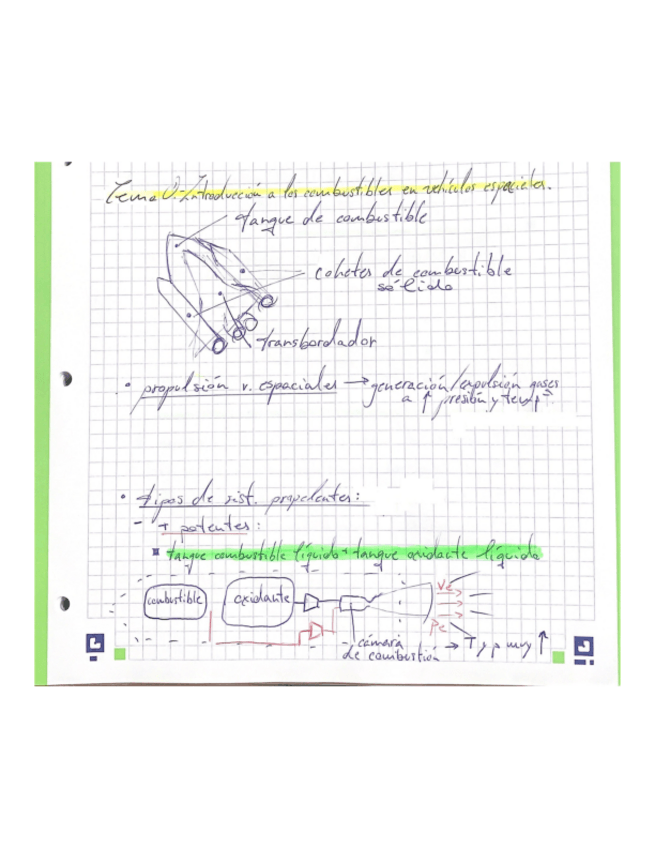 Tema 0-Introducción a los combustibles en vehículos espaciales.
tanque de combustible
cohetes de combustible
sólido
transbordador
• propulsión v. espaciales → generación/expulsión gases
a ↑ presión y tempª.
• tipos de sist. propelentes:
- + potentes:
tanque combustible líquido + tanque oxidante líquido
combustible
oxidante
Ve
Pe
cámara
de combustión
→ T y p muy ↑